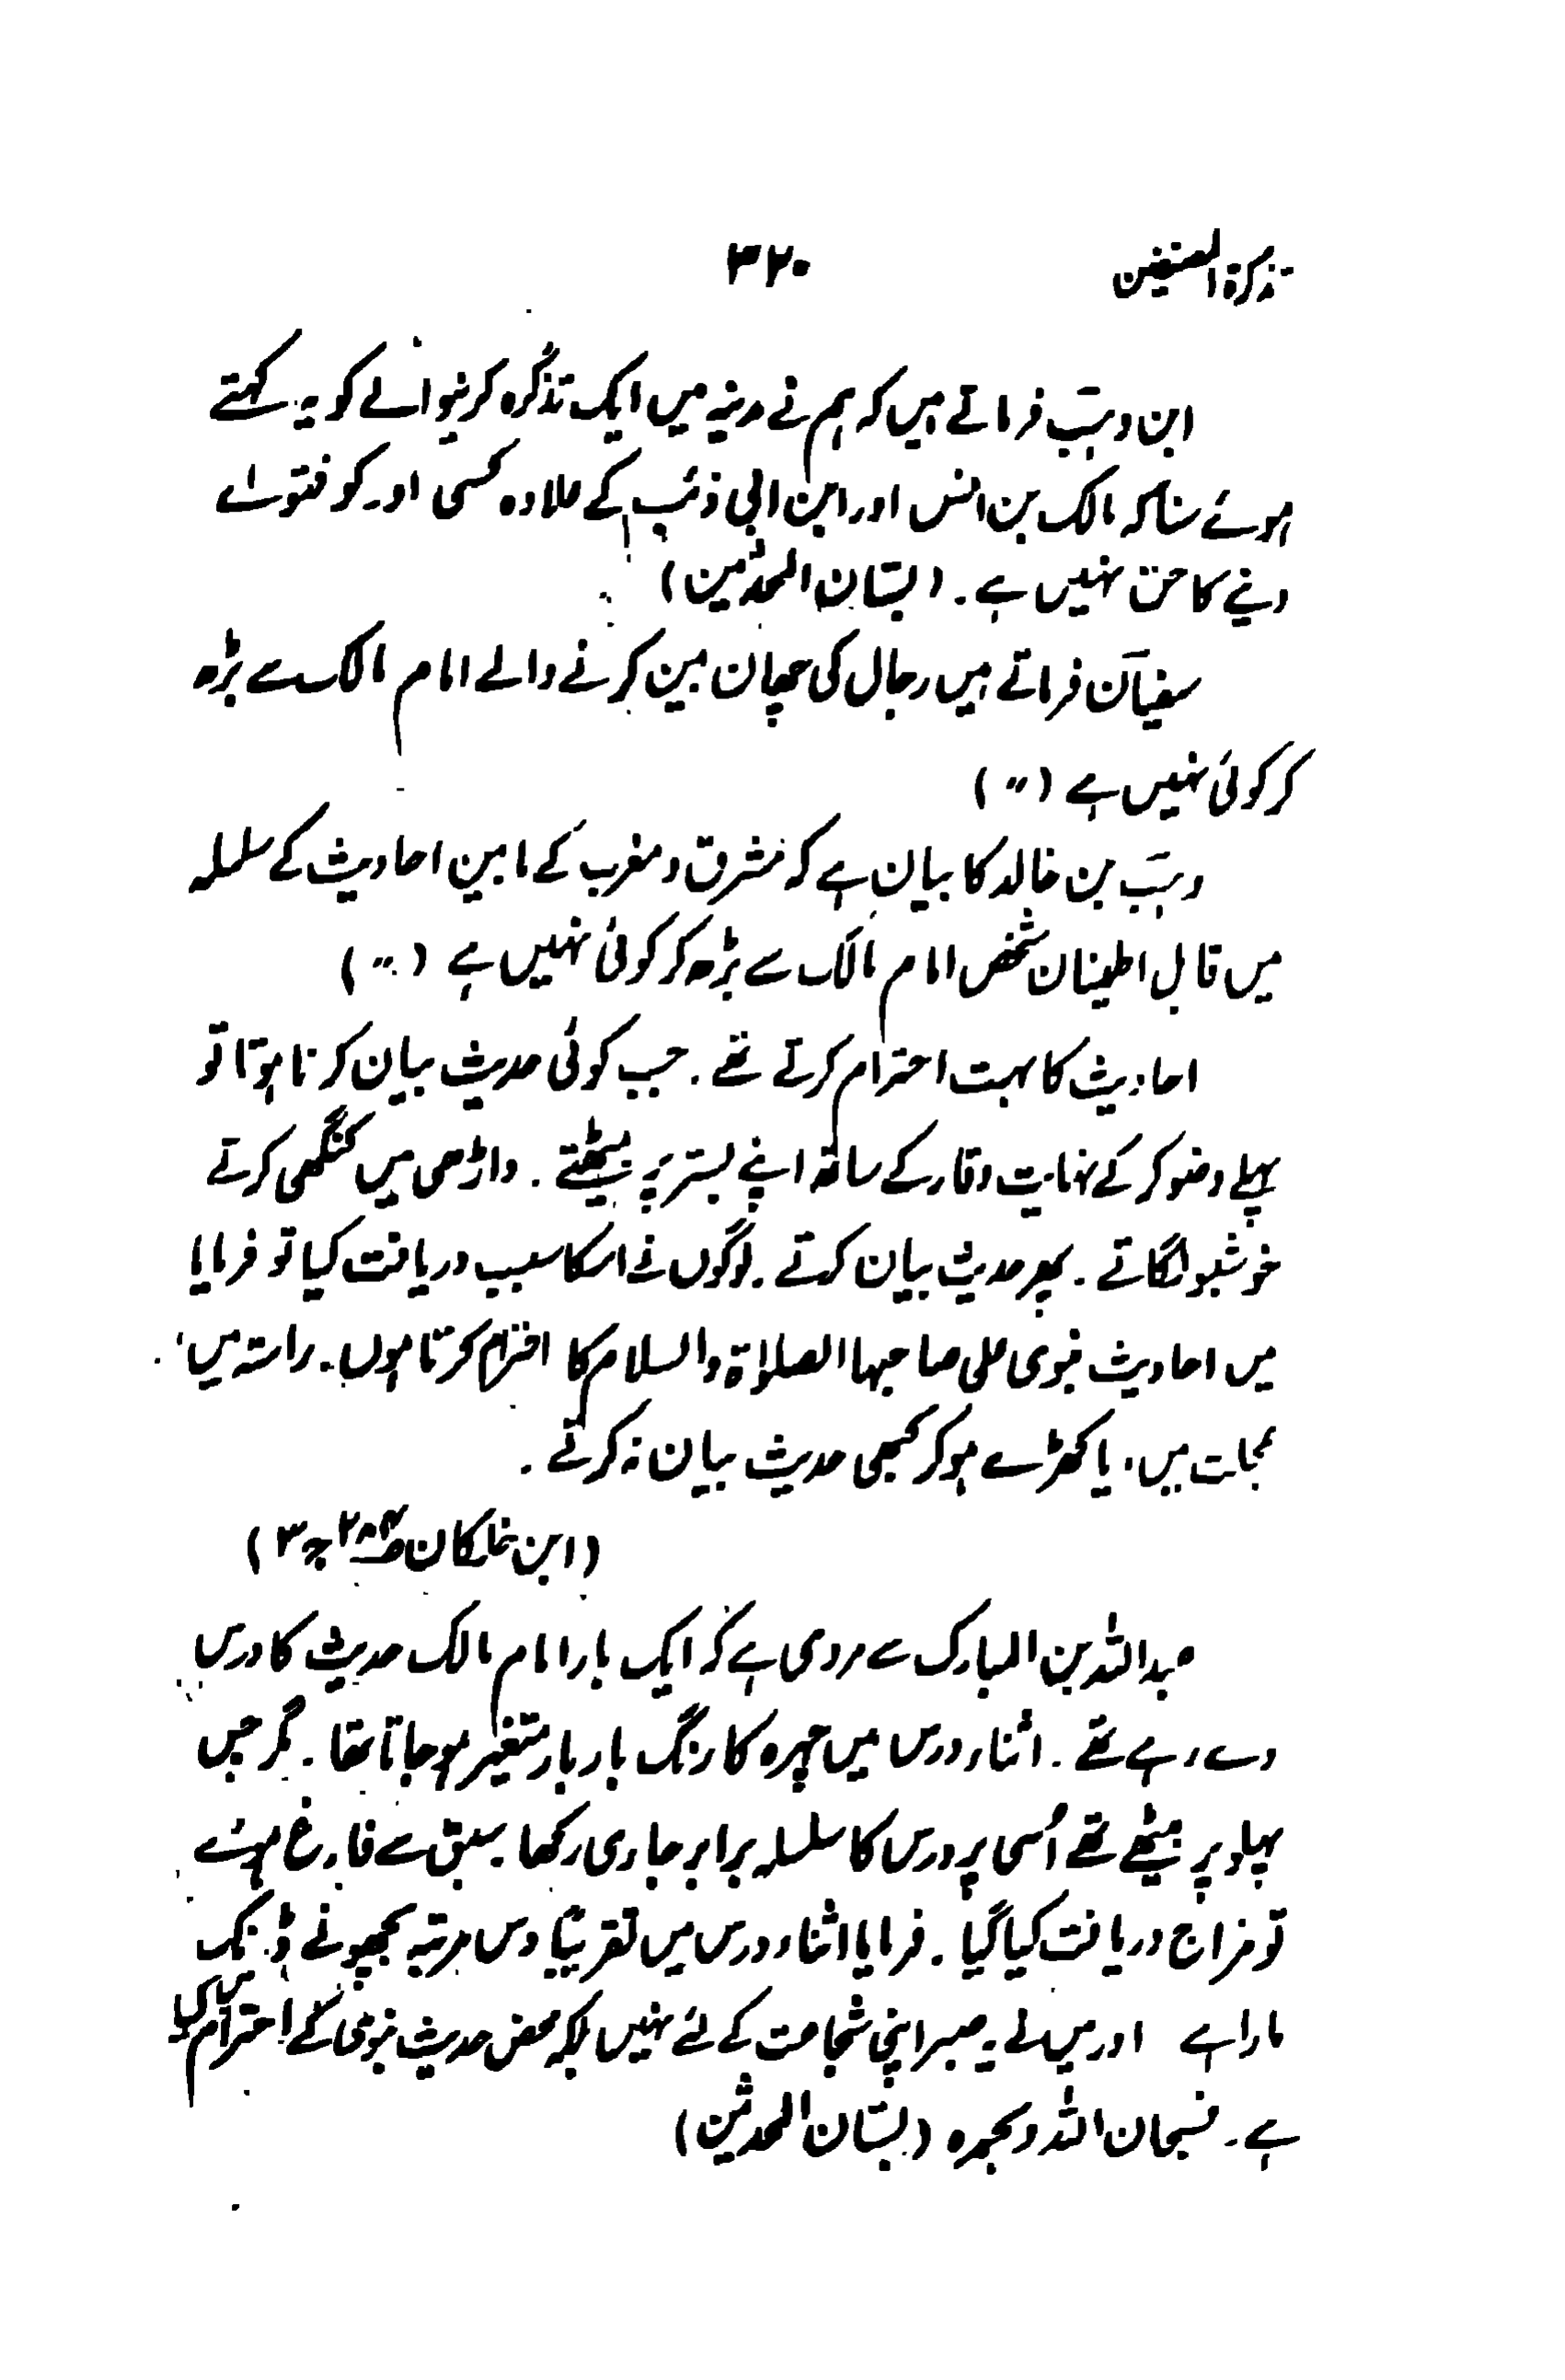 تذکرۃ المصنفین
۳۲۰
ابن وہب فرماتے ہیں کہ ہم نے مدینہ میں ایک تذکرہ کرنیوالے کو یہ کہتے
ہوئے سنا کہ مالک بن انس اور ابن ابی ذئب کے علاوہ کسی اور کو فتوے
دینے کا حق نہیں ہے۔ (بستان المحدثین)
سفیان فرماتے ہیں رجال کی چھان بین کرنے والے امام مالک سے بڑھ
کر کوئی نہیں ہے (〃)
وہب بن خالد کا بیان ہے کہ مشرق و مغرب کے مابین احادیث کے سلسلہ
میں قابل اطمینان شخص امام مالک سے بڑھ کر کوئی نہیں ہے (〃)
احادیث کا بہت احترام کرتے تھے۔ جب کوئی حدیث بیان کرنا ہوتا تو
پہلے وضو کر کے نہایت وقار کے ساتھ اپنے بستر پر بیٹھتے۔ داڑھی میں کنگھی کرتے
خوشبو لگاتے۔ پھر حدیث بیان کرتے۔ لوگوں نے اسکا سبب دریافت کیا تو فرمایا
میں احادیث نبوی علی صاحبہا الصلاۃ والسلام کا احترام کرتا ہوں۔ راستہ میں،
عجلت میں، یا کھڑے ہو کر کبھی حدیث بیان نہ کرتے۔
(ابن خلکان ج ۳)
عبداللہ بن المبارک سے مروی ہے کہ ایک بار امام مالک حدیث کا درس
دے رہے تھے۔ اثناء درس میں چہرہ کا رنگ بار بار متغیر ہو جاتا تھا۔ مگر جس
پہلو پر بیٹھے تھے اُسی پر درس کا سلسلہ برابر جاری رکھا۔ سبق سے فارغ ہوئے
تو مزاج دریافت کیا گیا۔ فرمایا اثناء درس میں تقریباً دس مرتبہ بچھو نے ڈنک
مارا ہے اور میں نے یہ صبر اپنی شجاعت کے لئے نہیں بلکہ محض حدیث نبوی کے احترام میں کیا
ہے۔ فسبحان اللہ وبحمدہ (بستان المحدثین)